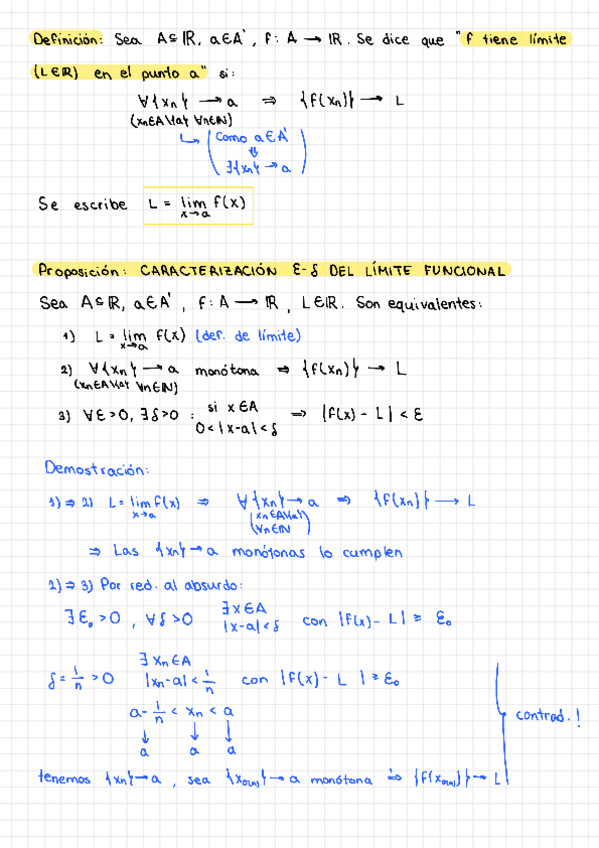 Definición: Sea A⊆ℝ, a∈A', f: A → ℝ. Se dice que "f tiene límite
(L∈ℝ) en el punto a" si:
∀{xₙ} → a ⇒ {f(xₙ)} → L
(xₙ∈A\{a} ∀n∈ℕ)
↳ (Como a∈A'
⇓
∃{xₙ} → a)
Se escribe L = lim f(x)
x→a
Proposición: CARACTERIZACIÓN ε-δ DEL LÍMITE FUNCIONAL
Sea A⊆ℝ, a∈A', f: A → ℝ, L∈ℝ. Son equivalentes:
1) L = lim f(x) (def. de límite)
x→a
2) ∀{xₙ} → a monótona ⇒ {f(xₙ)} → L
(xₙ∈A\{a} ∀n∈ℕ)
3) ∀ε>0, ∃δ>0 : si x∈A ⇒ |f(x) - L| < ε
0<|x-a|<δ
Demostración:
1) ⇒ 2) L = lim f(x) ⇒ ∀{xₙ} → a ⇒ {f(xₙ)} → L
x→a (xₙ∈A\{a})
(∀n∈ℕ)
⇒ Las {xₙ} → a monótonas lo cumplen
2) ⇒ 3) Por red. al absurdo:
∃ε₀>0, ∀δ>0 ∃x∈A con |f(x) - L| ≥ ε₀
|x-a|<δ
δ = 1/n > 0 ∃xₙ∈A con |f(x) - L| ≥ ε₀
|xₙ-a| < 1/n
a - 1/n < xₙ < a
↓ ↓ ↓
a a a
contrad.!
tenemos {xₙ} → a, sea {x_σ(n)} → a monótona ⇒ {f(x_σ(n))} → L